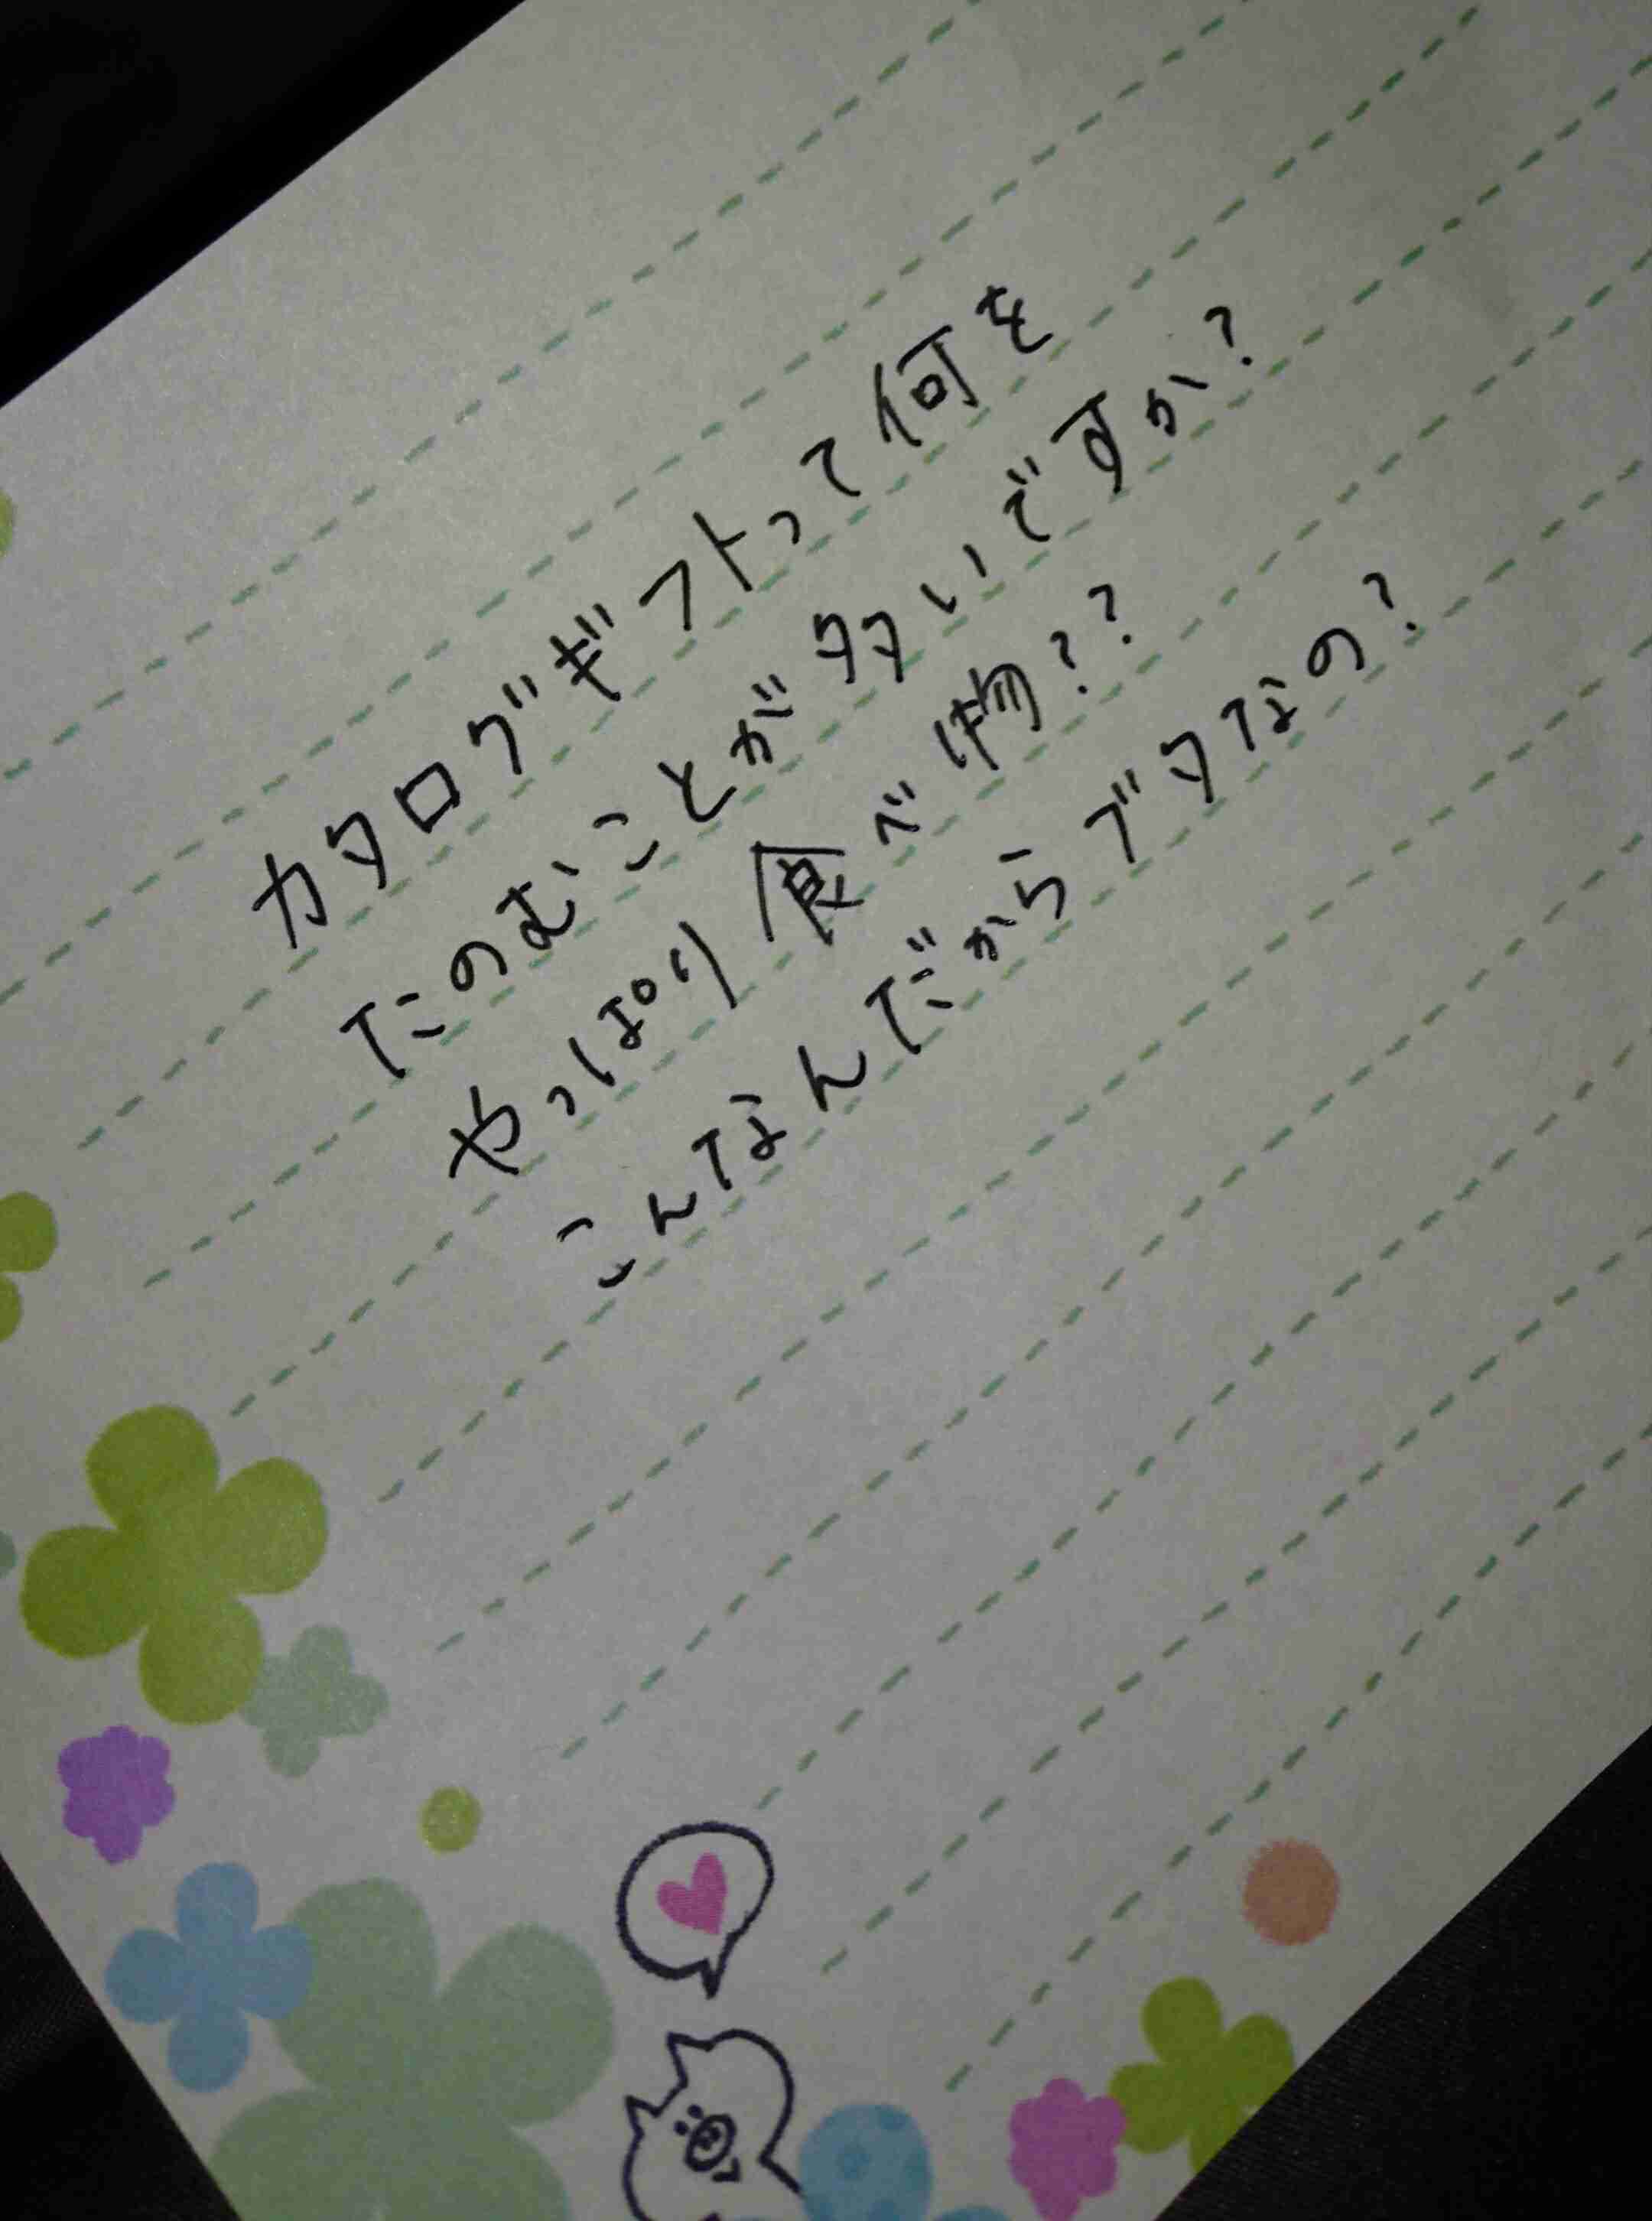 カタログギフトって何を
たのむことが多いですか?
やっぱり食べ物??
こんなんだからブタなの?